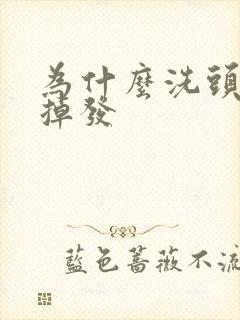 為什麼洗頭
掉發
藍色薔薇不流